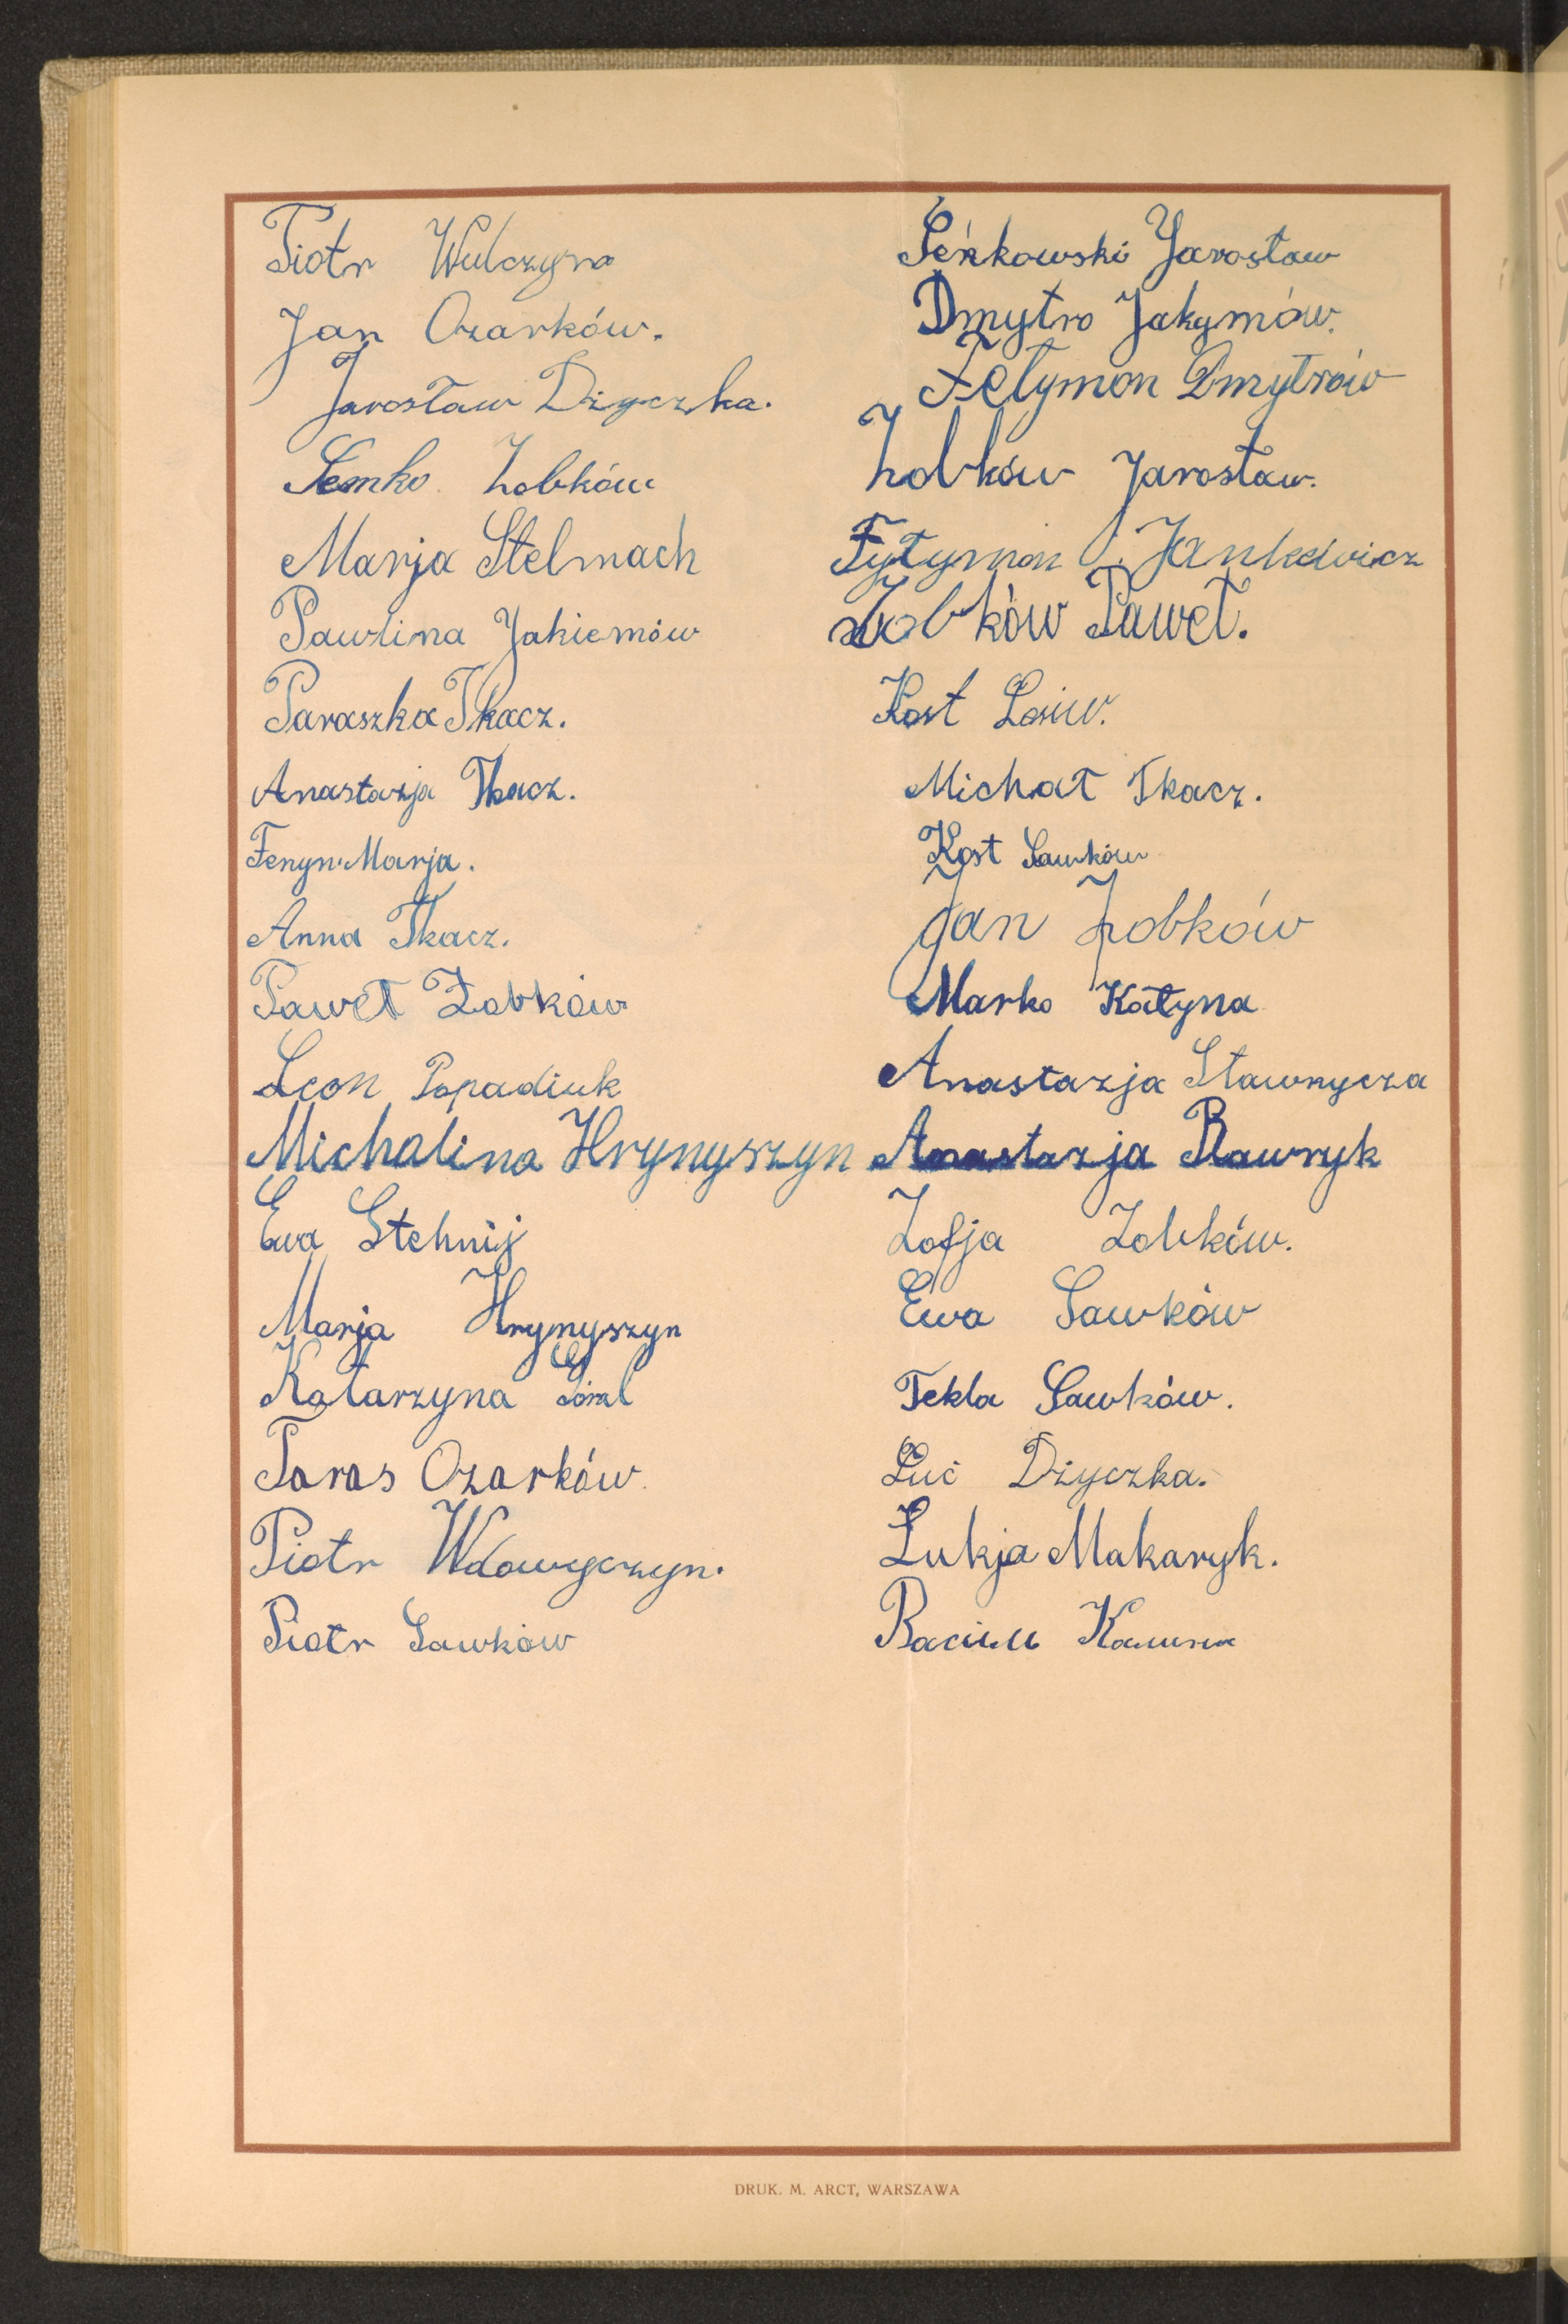 Piotr Wulczyna
Jan Ozarków.
Jarosław Dżyczka.
Semko Zobków
Marja Stelmach
Pawlina Jakiemów
Paraszka Tkacz.
Anastazja Tkacz.
Fenyn Marja.
Anna Tkacz.
Paweł Zobków
Leon Popadiuk
Michalina Hrynyszyn
Ewa Stehnij
Marja Hrynyszyn
Katarzyna Góral
Taras Ozarków
Piotr Wdowyczyn.
Piotr Sawków
Seńkowski Jarosław
Dmytro Jakymów.
Fełymon Dmytrów
Zobków Jarosław.
Fyłymon Jankewicz
Zobków Paweł.
Kost Łesiw.
Michał Tkacz.
Kost Sawków
Jan Zobków
Marko Kałyna
Anastazja Sławnycza
Anastazja Rawryk
Zofja Zobków.
Ewa Sawków
Tekla Sawków.
Luć Dżyczka.
Łukja Makaryk.
DRUK. M. ARCT, WARSZAWA